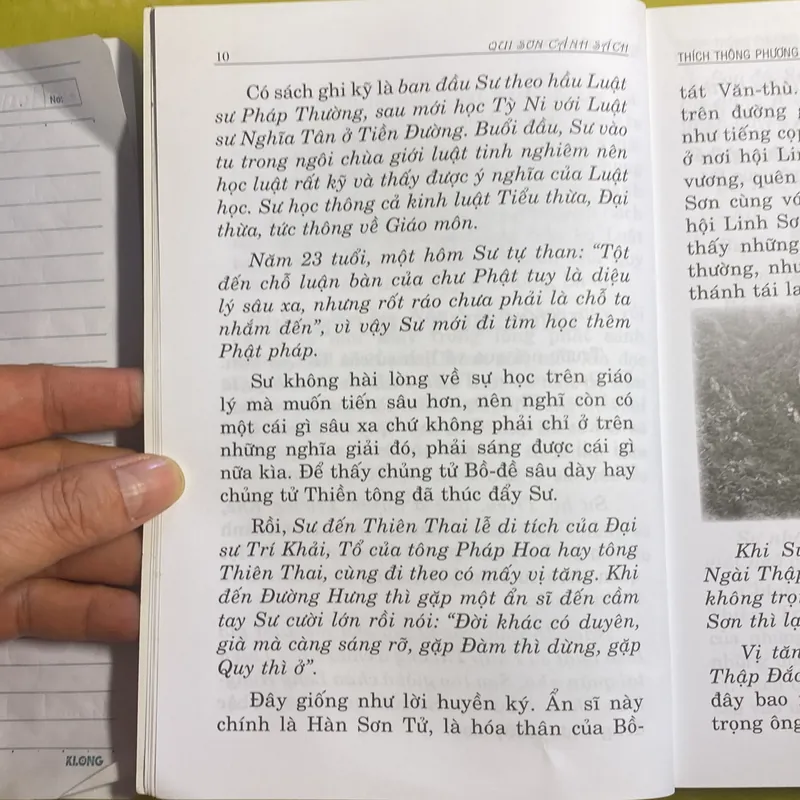 10
QUI SƠN CẢNH SÁCH
Có sách ghi kỹ là ban đầu Sư theo hầu Luật
sư Pháp Thường, sau mới học Tỳ Ni với Luật
sư Nghĩa Tân ở Tiền Đường. Buổi đầu, Sư vào
tu trong ngôi chùa giới luật tinh nghiêm nên
học luật rất kỹ và thấy được ý nghĩa của Luật
học. Sư học thông cả kinh luật Tiểu thừa, Đại
thừa, tức thông về Giáo môn.
Năm 23 tuổi, một hôm Sư tự than: “Tột
đến chỗ luận bàn của chư Phật tuy là diệu
lý sâu xa, nhưng rốt ráo chưa phải là chỗ ta
nhắm đến”, vì vậy Sư mới đi tìm học thêm
Phật pháp.
Sư không hài lòng về sự học trên giáo
lý mà muốn tiến sâu hơn, nên nghĩ còn có
một cái gì sâu xa chứ không phải chỉ ở trên
những nghĩa giải đó, phải sáng được cái gì
nữa kìa. Để thấy chủng tử Bồ-đề sâu dày hay
chủng tử Thiền tông đã thúc đẩy Sư.
Rồi, Sư đến Thiên Thai lễ di tích của Đại
sư Trí Khải, Tổ của tông Pháp Hoa hay tông
Thiên Thai, cùng đi theo có mấy vị tăng. Khi
đến Đường Hưng thì gặp một ẩn sĩ đến cầm
tay Sư cười lớn rồi nói: “Đời khác có duyên,
già mà càng sáng rỡ, gặp Đàm thì dừng, gặp
Quy thì ở”.
Đây giống như lời huyền ký. Ẩn sĩ này
chính là Hàn Sơn Tử, là hóa thân của Bồ-
THÍCH THÔNG PHƯƠNG
tát Văn-thù.
trên đường
như tiếng gọi
ở nơi hội Lin
vương, quên
Sơn cùng vớ
hội Linh Sơ
thấy những
thường, như
thánh tái la
Khi Sư
Ngài Thập
không trọ
Sơn thì lạ
Vị tăn
Thập Đắc
đây bao
trọng ông
No:
KLONG